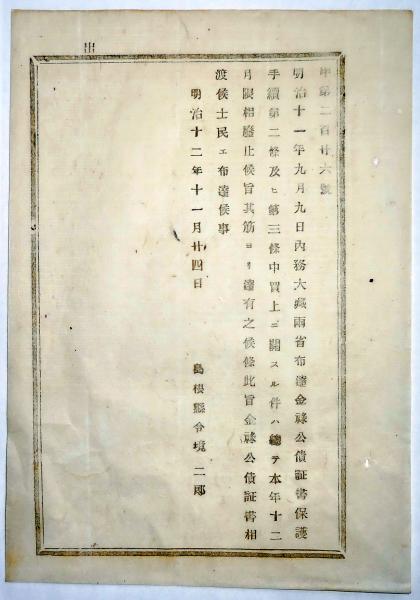 出
甲第二百廿六號
明治十一年九月九日內務大藏兩省布達金祿公債証書保護
手續第二條及ヒ第三條中買上ニ關スル件ハ總テ本年十二
月限相廢止候旨其筋ヨリ達有之候條此旨金祿公債証書相
渡候士民ェ布達候事
明治十二年十一月廿四日
島根縣令境二郎